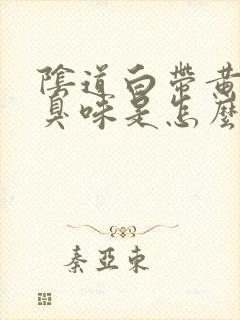 陰道白帶黃
臭味是怎麼
秦亞東